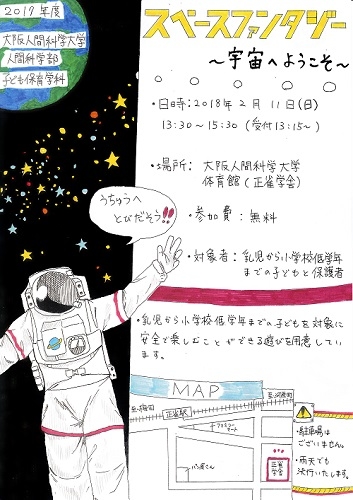 2017年度
大阪人間科学大学
人間科学部
子ども保育学科
スペースファンタジー
～宇宙へようこそ～
・日時：2018年2月11日(日)
13:30～15:30 (受付13:15～)
・場所： 大阪人間科学大学
体育館(正雀学舎)
・参加費：無料
・対象者：乳児から小学校低学年
までの子どもと保護者
うちゅうへ
とびだそう!!
・乳児から小学校低学年までの子どもを対象に
安全で楽しむことができる遊びを用意してい
ます。
MAP
至梅田
正雀駅
至河原町
ファミリーマート
パン屋さん
正雀
学舎
・駐車場は
ございません。
・雨天でも
決行いたします。